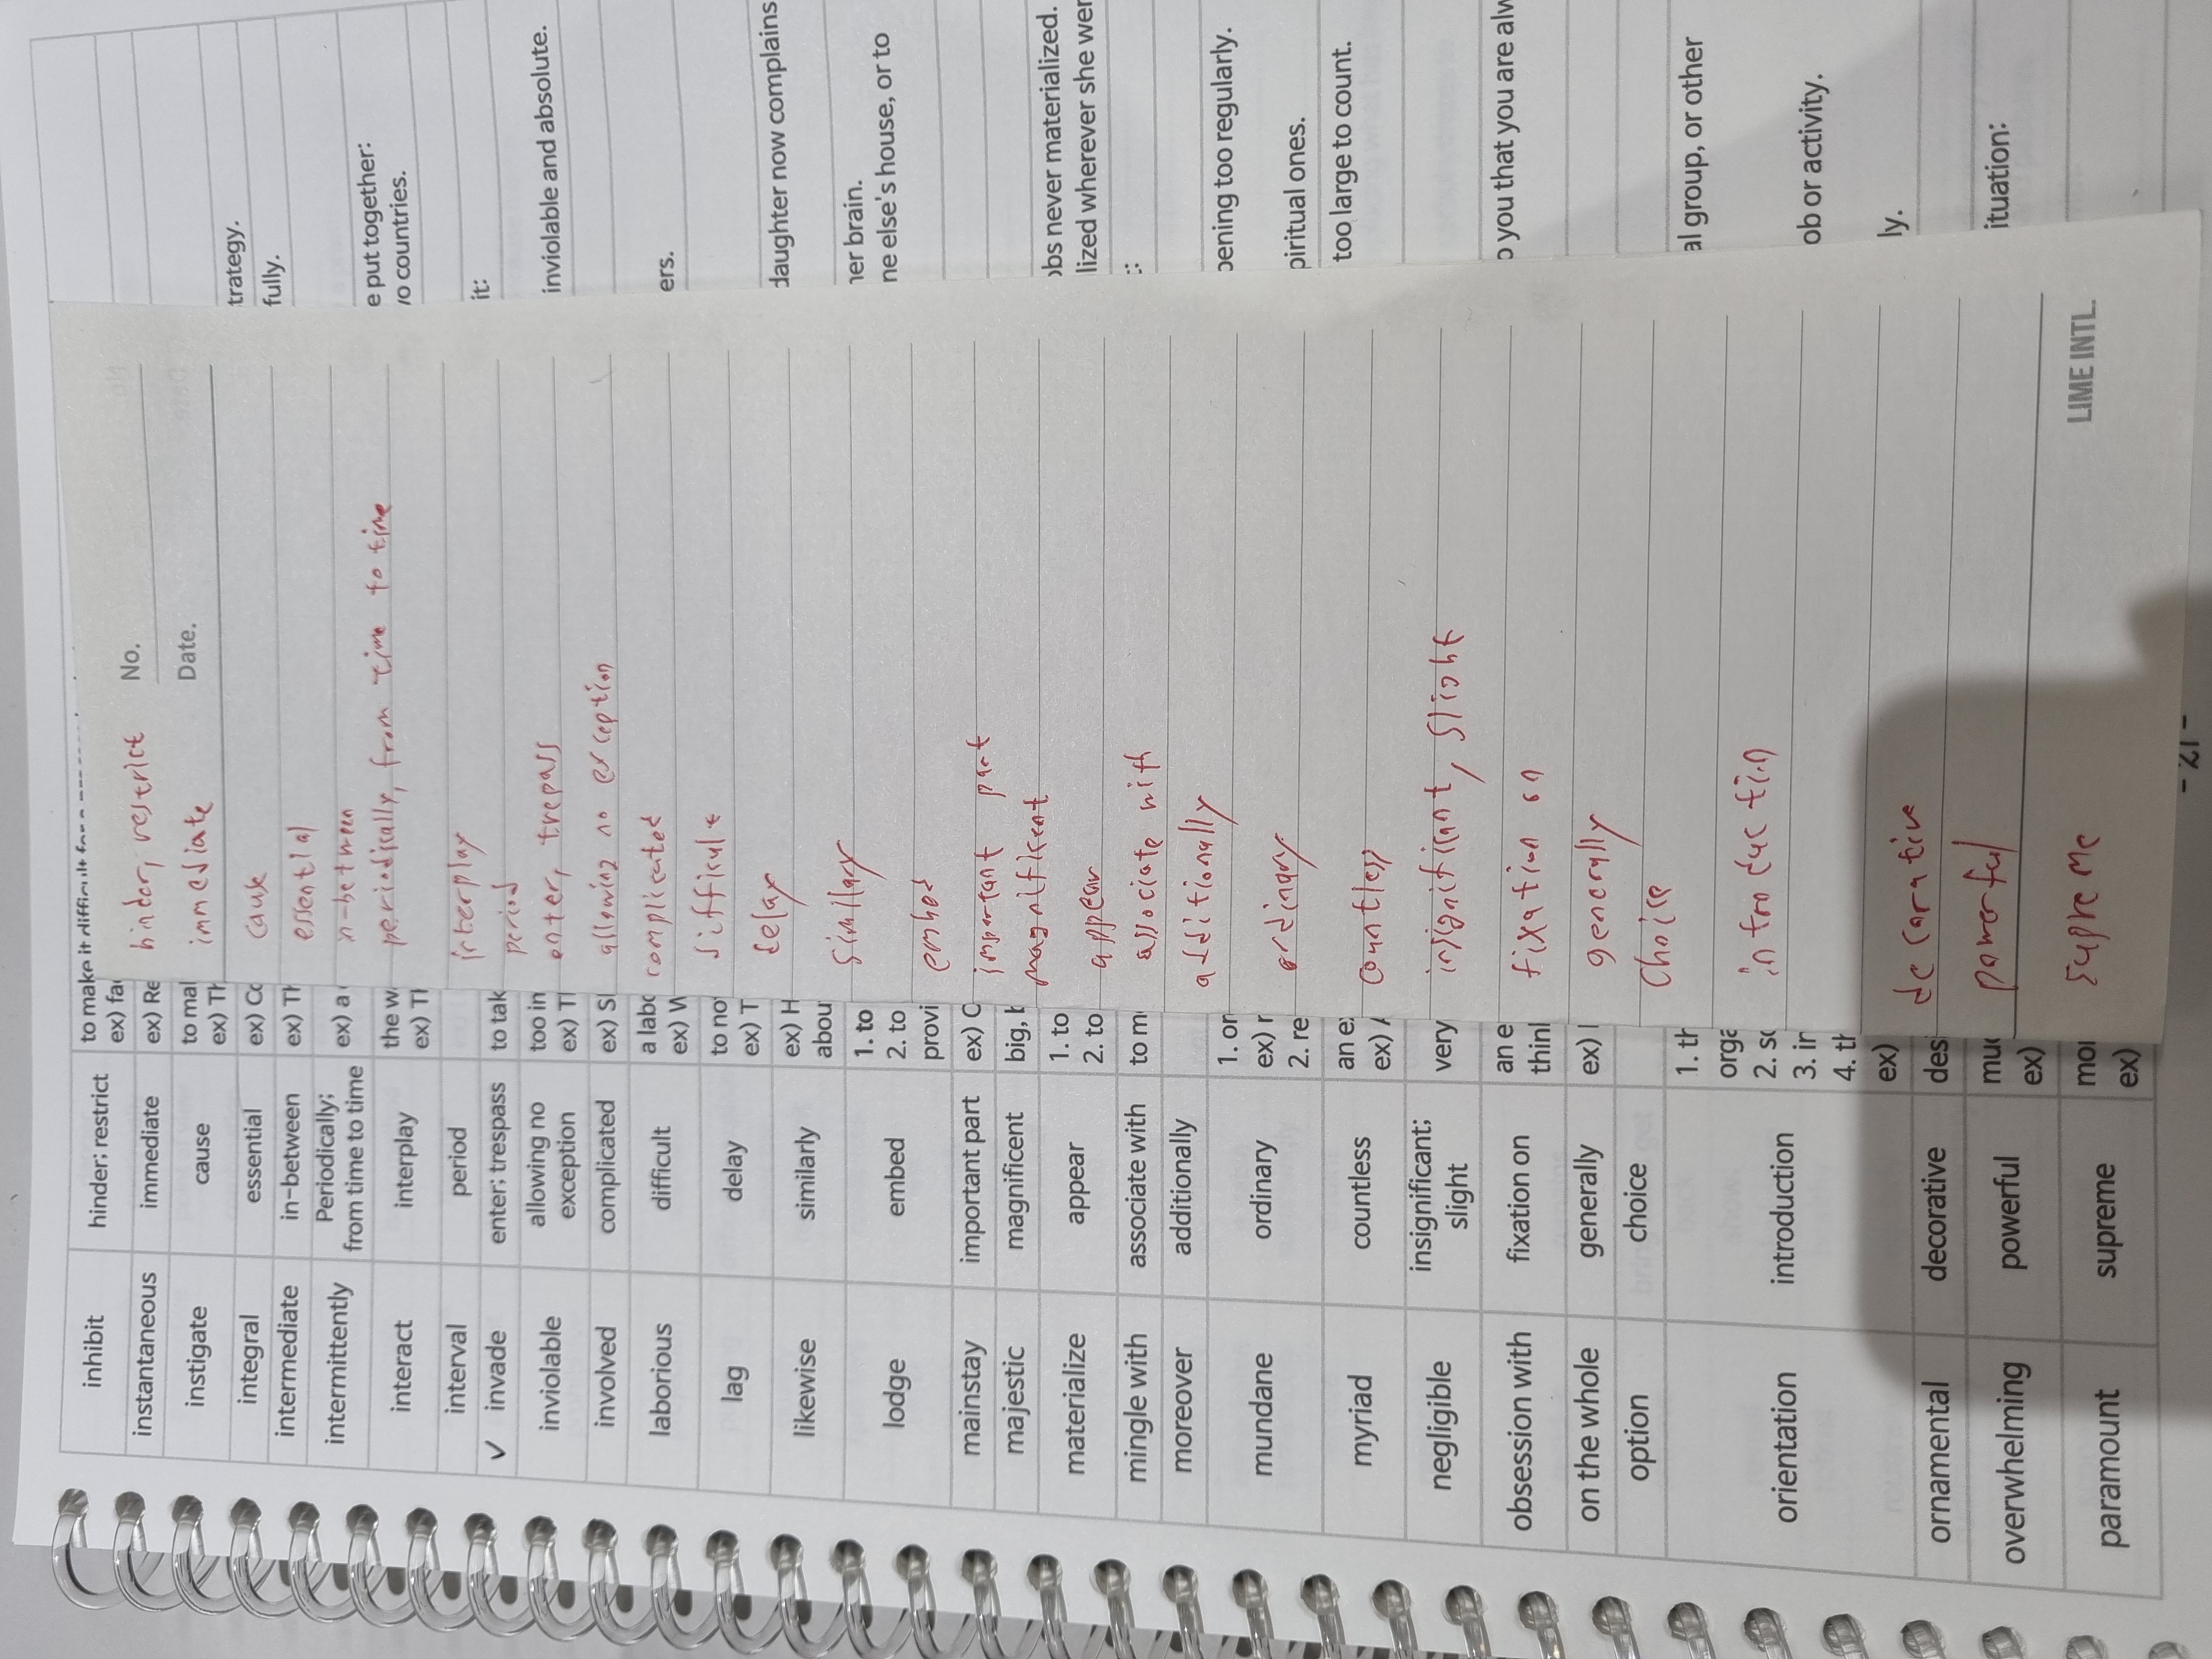 inhibit hinder; restrict to make it difficult for
ex) fa
instantaneous immediate ex) Re
instigate cause to mal
ex) Th
integral essential ex) Co
intermediate in-between ex) Th
intermittently Periodically; from time to time ex) a
interact interplay the w
ex) Tl
interval period
✓ invade enter; trespass to tak
inviolable allowing no exception too in
ex) Tl
involved complicated ex) S
laborious difficult a labo
ex) W
lag delay to no
ex) T
likewise similarly ex) H
abou
lodge embed 1. to
2. to
provi
mainstay important part ex) C
majestic magnificent big, b
materialize appear 1. to
2. to
mingle with associate with to m
moreover additionally
mundane ordinary 1. or
ex) r
2. re
myriad countless an e
ex)
negligible insignificant; slight very
obsession with fixation on an e
thinl
on the whole generally ex) I
option choice
orientation introduction 1. th
orga
2. so
3. ir
4. th
ex)
ornamental decorative des
overwhelming powerful muc
ex)
paramount supreme mor
ex)
No.
Date.
hinder, restrict
immediate
cause
essential
n-between
periodically, from time to time
interplay
period
enter, trepass
allowing no exception
complicated
difficult
delay
similary
embed
important part
magnificent
appear
associate with
additionally
ordinary
countless
insignificant, slight
fixation on
generally
choice
introduction
decorative
powerful
supreme
LIME INTL.
trategy.
fully.
e put together:
vo countries.
it:
inviolable and absolute.
ers.
daughter now complains
her brain.
ne else's house, or to
obs never materialized.
lized wherever she wer
t:
pening too regularly.
piritual ones.
too large to count.
o you that you are alw
al group, or other
ob or activity.
ly.
ituation:
- 21 -